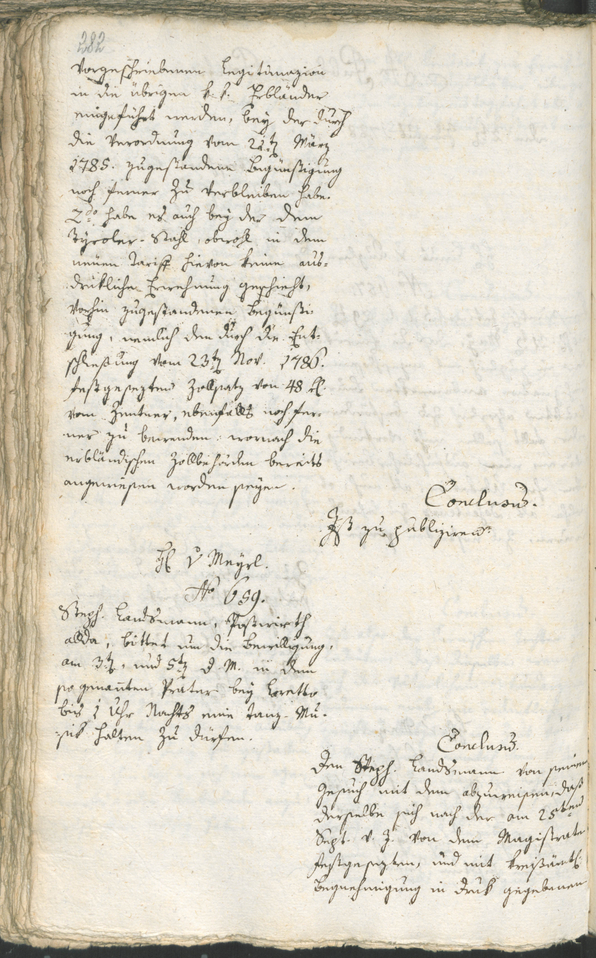 282
vorgeschriebenen Legitimazion
in die übrigen k: k: Erbländer
eingeführt werden, bey der durch
die Verordnung vom 21t März
1785. zugestandene Begünstigung
noch ferner zu verbleiben habe.
2do habe es auch bey der dem
Tyroler-Stahl, obwohl in dem
neuen Tariff hievon keine aus-
drükliche Erwehnung geschieht,
vorhin zugestandenen Begünsti-
gung, nemlich den durch die Ent-
schließung vom 23t Nov. 1786.
festgesezten Zollsatz von 48 xl
vom Zentner, ebenfalls noch fer-
ner zu bewenden: wornach die
erbländischen Zollbehörden bereits
angewiesen worden seyen.
Conclusum.
Ist zu publiziren.
H. v Meyrl.
No 659.
Steph. Landsmann, Gastwirth
allda, bittet um die Bewilligung,
am 3t, und 5t d. M. in dem
so genannten Prater bey Loretto
bis 1 Uhr Nachts eine Tanz-Mu-
sik halten zu dürfen.
Conclusum.
Den Steph. Landsmann von seinem
Gesuch mit dem abzuweisen, daß
derselbe sich nach der am 25ten
Sept. v. J. von dem Magistrate
festgesezten, und mit kreisämtl.
Begnehmigung in Druk gegebenen